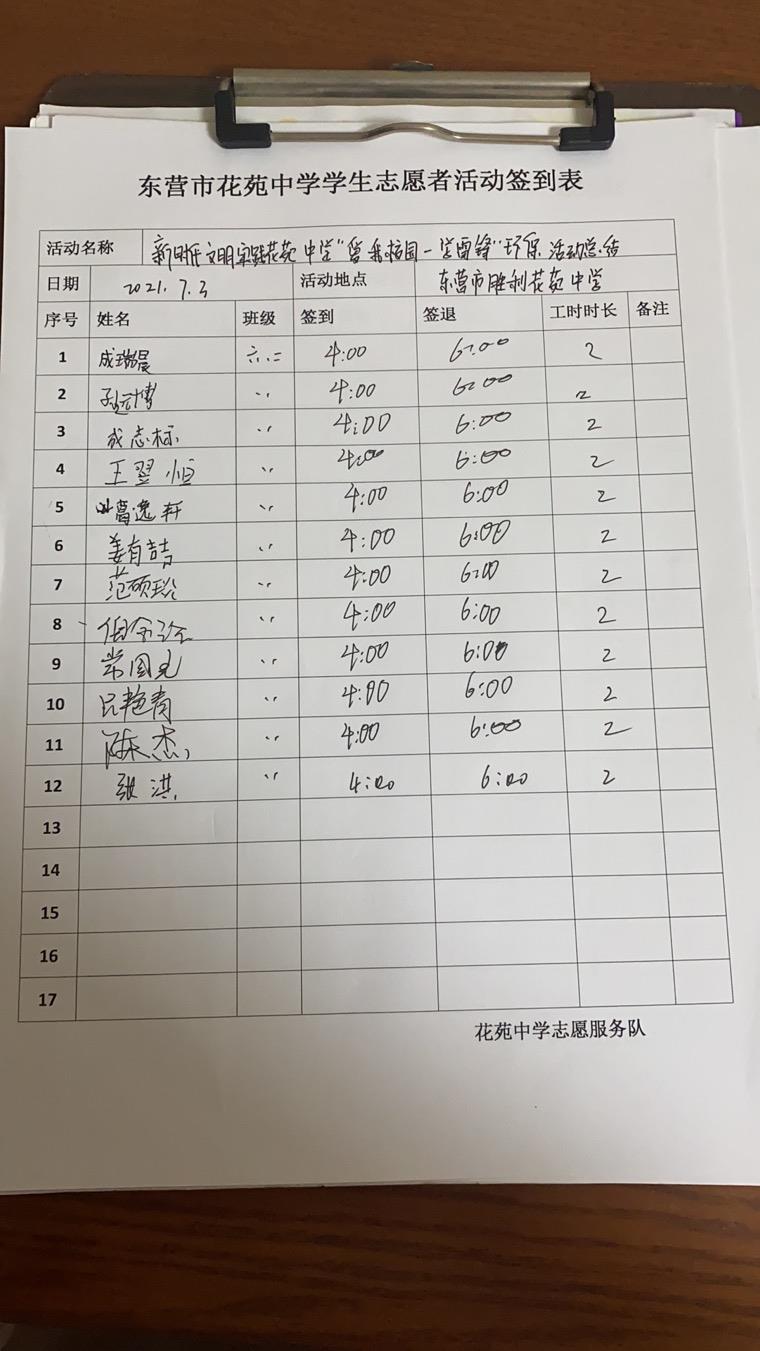 东营市花苑中学学生志愿者活动签到表
活动名称 新时代文明实践花苑中学"爱我校园-学雷锋"环保活动总结
日期 2021.7.3 活动地点 东营市胜利花苑中学
序号 姓名 班级 签到 签退 工时时长 备注
1 成瑞晨 六.二 4:00 6:00 2
2 孙远博 〃 4:00 6:00 2
3 成志标 〃 4:00 6:00 2
4 王翌恒 〃 4:00 6:00 2
5 曹逸轩 〃 4:00 6:00 2
6 姜有喆 〃 4:00 6:00 2
7 范硕 〃 4:00 6:00 2
8 〃 4:00 6:00 2
9 常国 〃 4:00 6:00 2
10 艳青 〃 4:00 6:00 2
11 陈杰 〃 4:00 6:00 2
12 张洪 〃 4:00 6:00 2
13
14
15
16
17
花苑中学志愿服务队